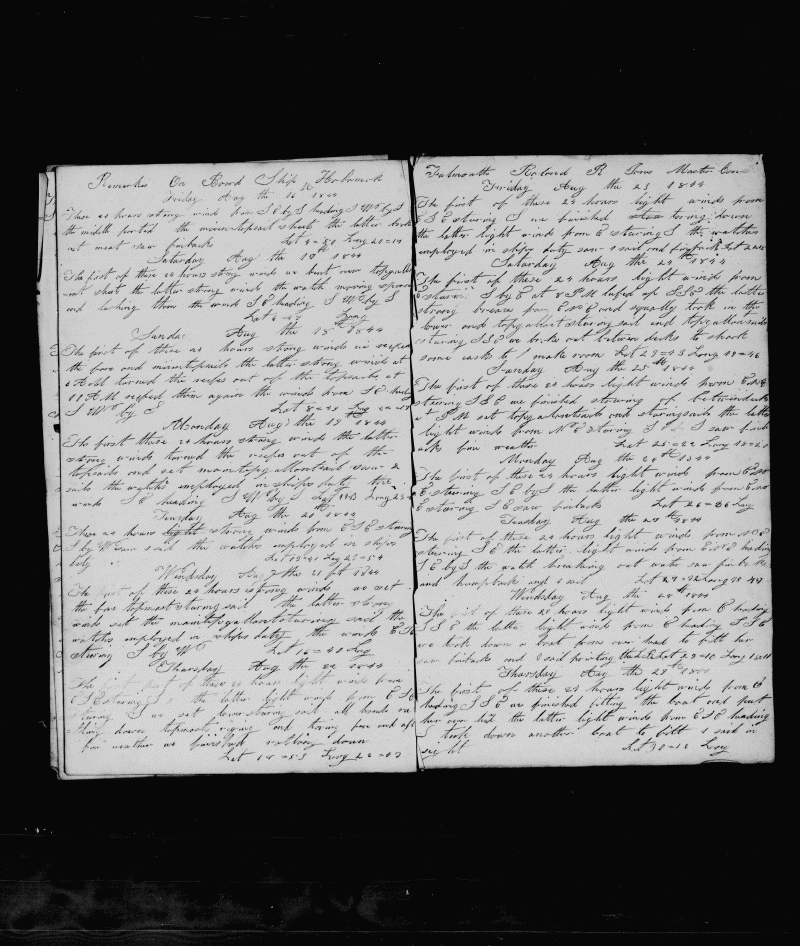 Remarks On Board Ship Hobomok
Friday Aug the 16 1844
These 24 hours strong winds from S E by S heading S W by S
the middle parted the main topsail sheet the latter
out meat saw finback Lat 4=51 Long 20=19
Saturday Aug the 17th 1844
The first of these 24 hours strong winds we bent new topgall
sheet the latter strong winds the watch
and lashing them the winds S E heading S W by S
Lat Long
Sunda Aug the 18th 1844
The first of these 24 hours strong winds we reefed
the fore and maintopsails the latter strong winds at
6 A M turned the reefs out of the topsails at
11 A M reefed them again the winds from S E
S W by S Lat 8=33 Long
Monday Aug the 19th 1844
The first these 24 hours strong winds the latter
strong winds turned the reefs out of the
topsails and set maintopgallantsail saw 2
sails the watch employed in ships duty the
winds S E heading S W by S Lat Long
Tuesday Aug the 20th 1844
These 24 hours light strong winds from E S E staring
S by W saw sail the watches employed in ships
duty Lat 13=41 Long 25=54
Wendsday Aug the 21st 1844
The first of these 24 hours strong winds we set
the fore topmast staringsail the latter strong
winds set the maintopgallantstaring sail the
watches employed in ships duty the winds E S E
staring S by W Lat 16=40 Long
Thursday Aug the 22 1844
The first part of these 24 hours light winds from
E S E staring the latter light winds from E S E
staring S we sent down staring sail all hands
down topmast riging and taring fore and aft
fair weather we finished ratling down
Lat 18=53 Long
Falmouth Roland R Jons Master
Friday Aug the 23 1844
The first of these 24 hours light winds from
E S E staring S we finished taring down
the latter light winds from E staring S the watches
employed in ships duty saw 1 sail and finback Lat
Saturday Aug the 24th 1844
The first of these 24 hours light winds from
E staring S by E at 8 P M lufed up S S E the latter
strong breezes from and squally took in the
lower and topmast staring sail and topgallantsails
staring S S E we broke out between decks to shook
some casks to make room Lat Long
Sunday Aug the 25th 1844
The first of these 24 hours light winds from
staring S S E we finished stowing of betwindecks
at P M set topgallantsails and staringsails the latter
light winds from N E staring saw finb
acks fair weather Lat 25=22 Long
Monday Aug the 26th 1844
The first of these 24 hours light winds from
E staring S E by S the latter light winds from
E staring S E saw finbacks Lat 26=26 Long
Tuesday Aug the 27th 1844
The first of these 24 hours light winds from
staring S E the latter light winds from heading
S E by S the watch breaking out water saw finbacks
and humpback and 1 sail Lat Long
Wendsday Aug the 28th 1844
The first of these 24 hours light winds from E heading
S S E the latter light winds from E heading S S E
we took down a boat from over head to fitt her
saw finback and 1 sail Lat 29=10 Long
Thursday Aug the 29th 1844
The first of these 24 hours light winds from E
heading S S E we finished fitting the boat and put
her over head the latter light winds from E S E heading
S took down another boat to fitt 1 sail in
sight Lat Long